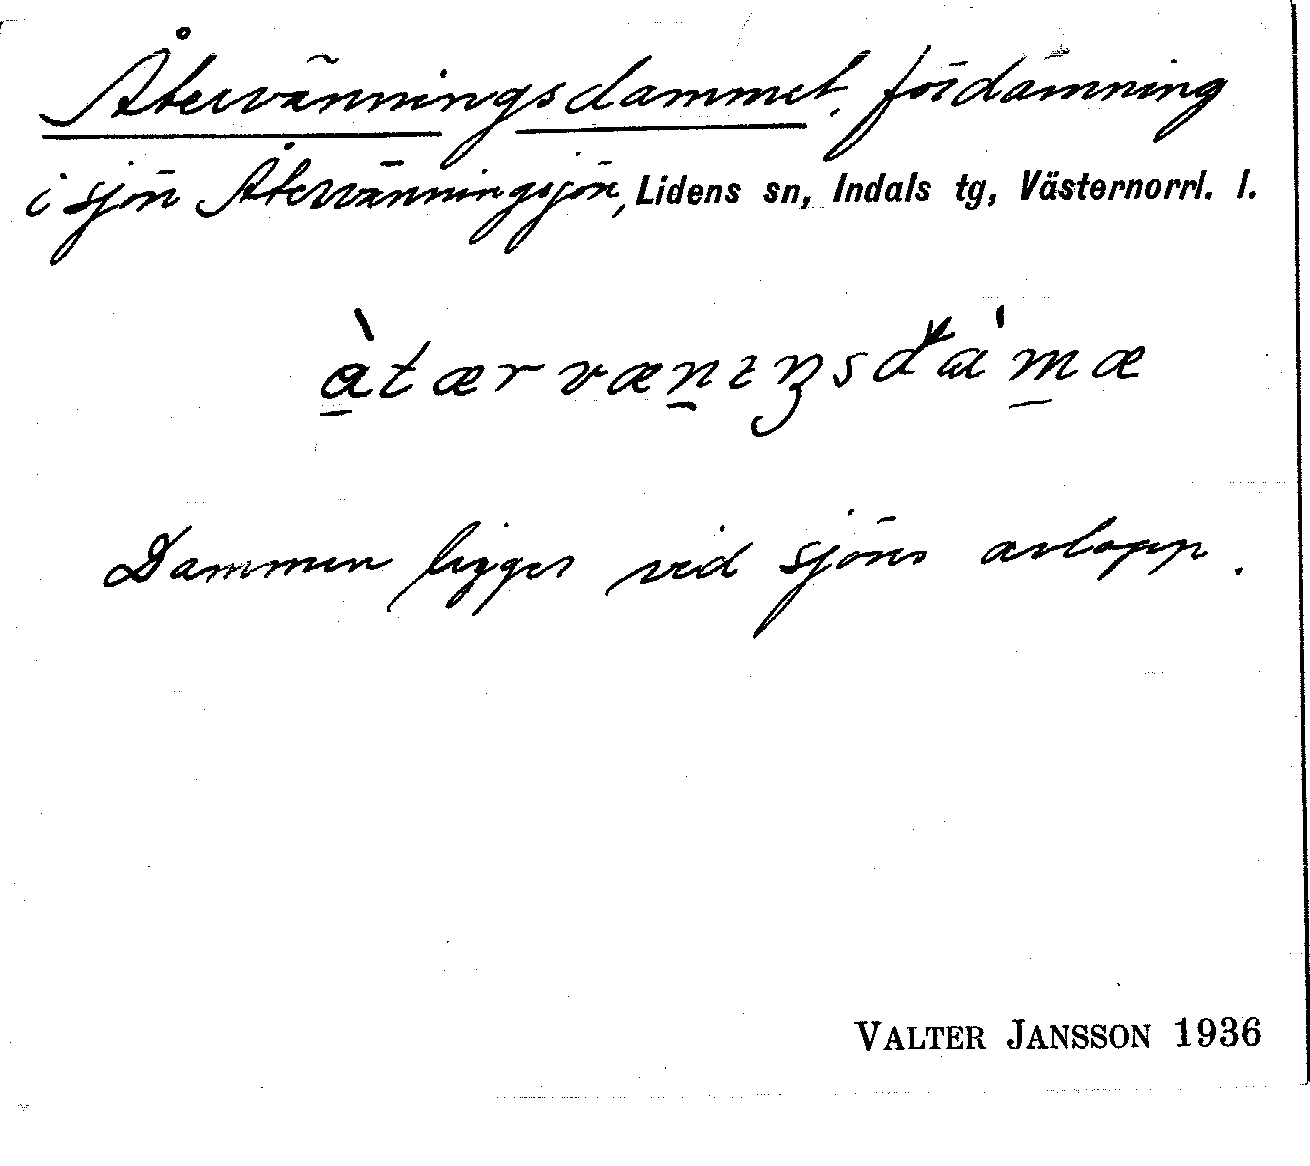 Återvänningsdammet, fördämning
i sjön Återvänningsjön, Lidens sn, Indals tg, Västernorrl. l.
àtærvænıŋsdà'mæ
Dammen ligger vid sjöns avlopp.
VALTER JANSSON 1936